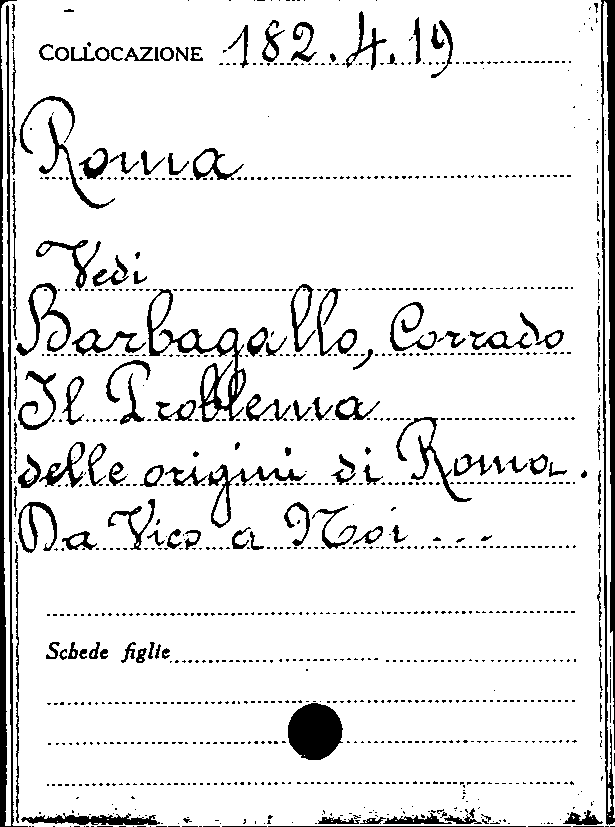 COLLOCAZIONE 182.4.19
Roma
Vedi
Barbagallo, Corrado
Il Problema
delle origini di Roma.
Da Vico a Noi ...
Schede figlie